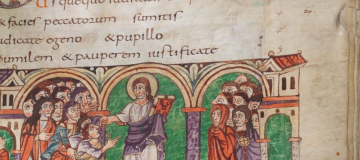 squequo
&facies peccatorum sumitis
udicate egeno &pupillo
umilem &pauperem iustificate